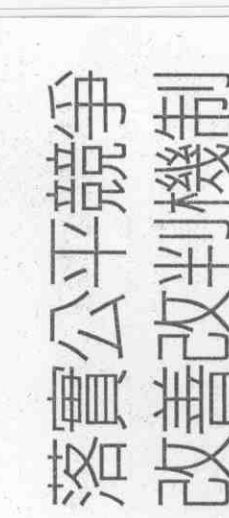 落實公平競爭
改善改判機制